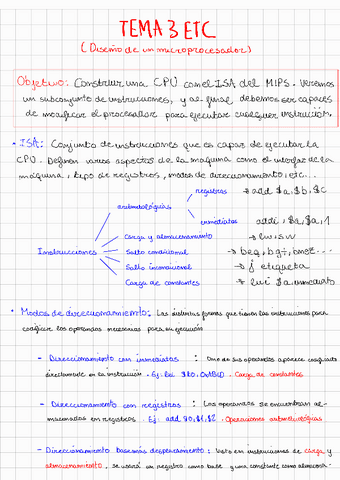 TEMA 3 ETC
(Diseño de un microprocesador)
Objetivo: Construir una CPU con el ISA del MIPS. Veremos
un subconjunto de instrucciones, y al final debemos ser capaces
de modificar el procesador para ejecutar cualquier instrucción.
• ISA: Conjunto de instrucciones que es capaz de ejecutar la
CPU. Definen varios aspectos de la maquina como el interfaz de la
maquina, tipo de registros, modos de direccionamiento, etc...
Instrucciones
aritmetológicas
registros → add $a, $b, $c
inmediatos addi, $a, $a, 1
Carga y almacenamiento → lw, sw
Salto condicional → beq, bgt, bnez...
Salto incondicional → j etiqueta
Carga de constantes → lui $a, inmediato
• Modos de direccionamiento: Las distintas formas que tienen las instrucciones para
codificar los operandos necesarios para su ejecución
- Direccionamiento con inmediatos : Uno de sus operandos aparece
directamente en la instrucción. Ej: lui Carga de constantes
- Direccionamiento con registros : Los operandos se encuentran al-
macenados en registros. Ej: add Operaciones aritmetológicas
- Direccionamiento base más desplazamiento: Visto en instrucciones de carga y
almacenamiento, se usará un registro como base y una constante como